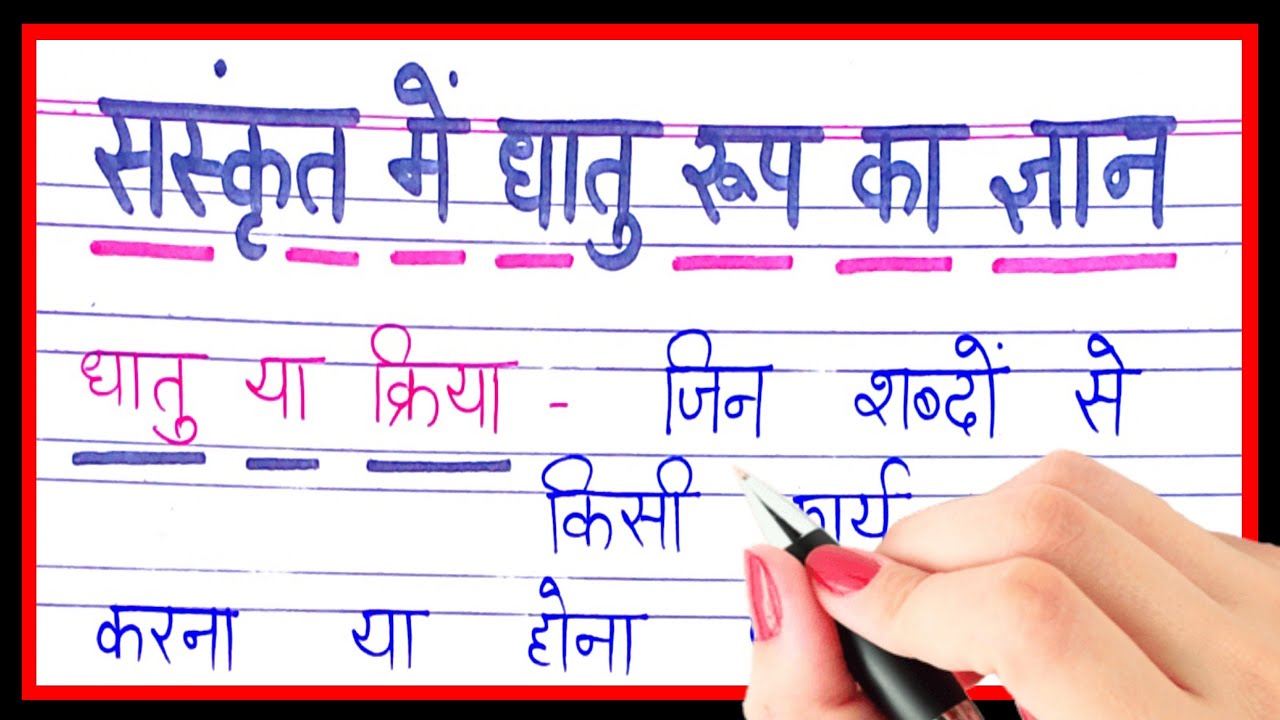 संस्कृत में धातु रूप का ज्ञान
धातु या क्रिया - जिन शब्दों से
किसी
करना या होना